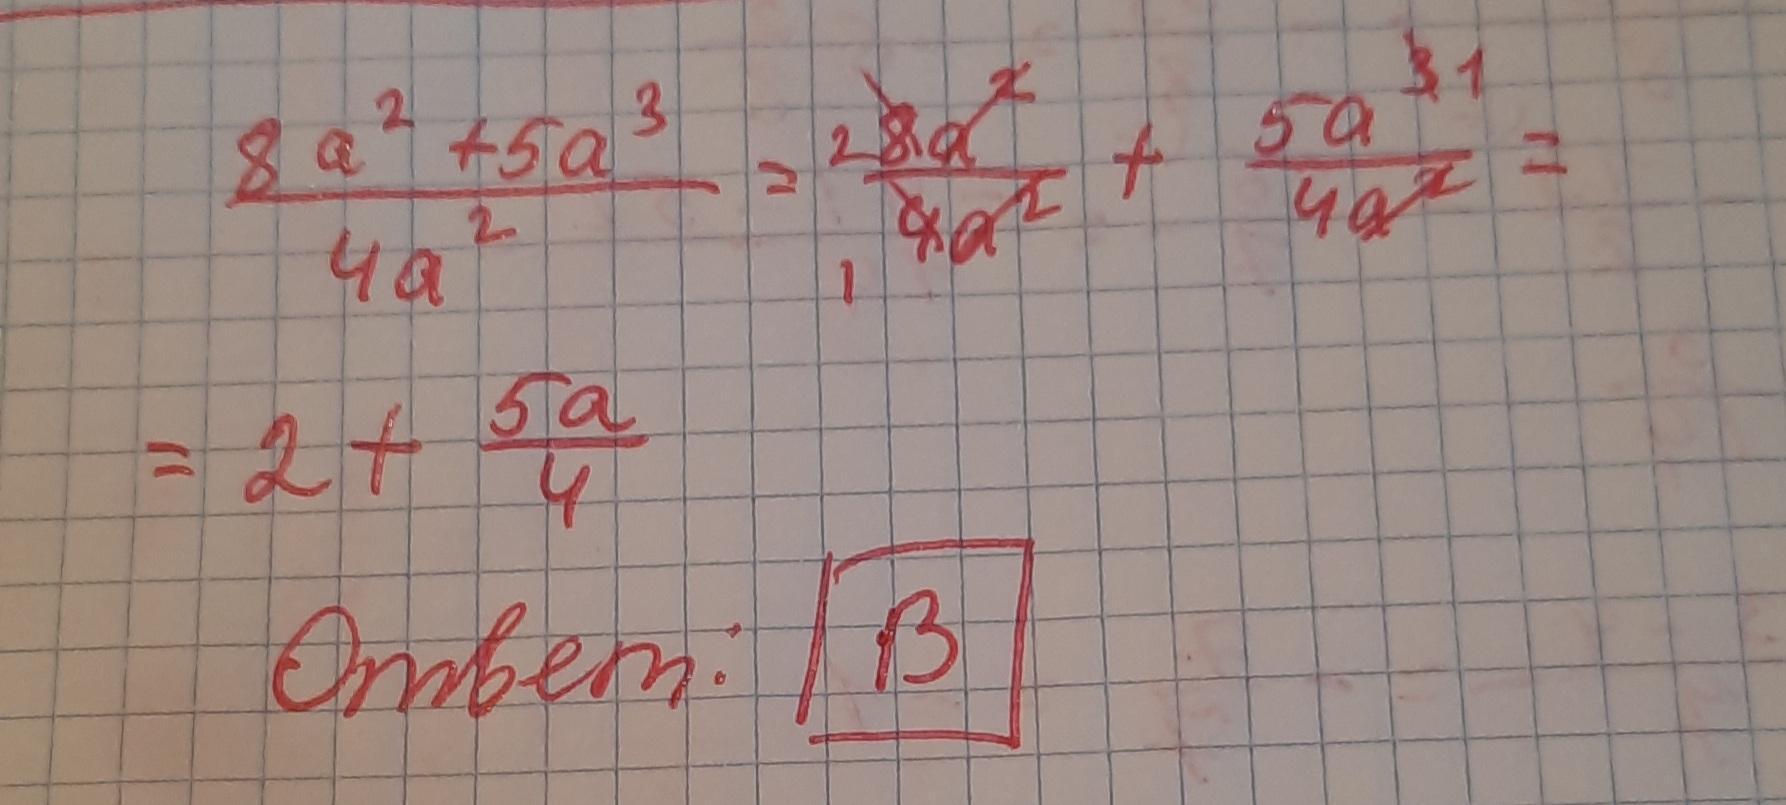 (8a² + 5a³)/(4a²) = 8a²/4a² + 5a³/4a² =
= 2 + 5a/4
Ответ: В